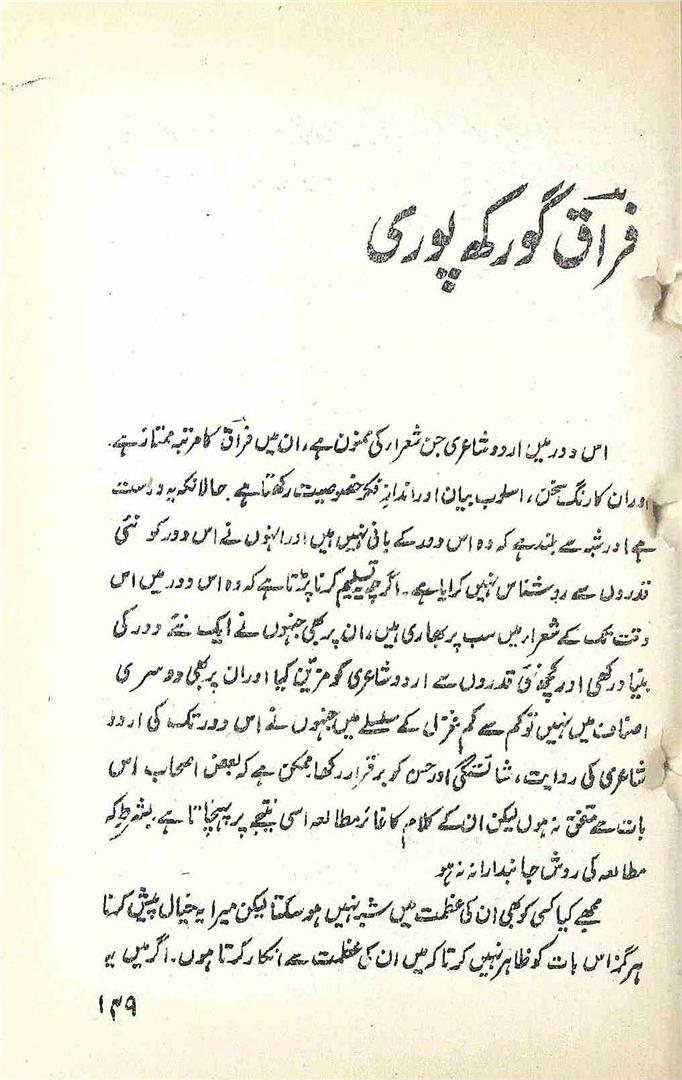 فراقؔ گورکھ پوری
اس دور میں اردو شاعری جن شعراء کی ممنون ہے، ان میں فراقؔ کا مرتبہ ممتاز ہے۔
اور ان کا رنگ سخن، اسلوب بیان اور اندازِ فکر خصوصیت رکھتا ہے۔ حالانکہ یہ درست
ہے اور شبہ سے بلند ہے کہ وہ اس دور کے بانی نہیں ہیں اور انہوں نے اس دور کو نئی
قدروں سے روشناس نہیں کرایا ہے۔ اگرچہ یہ تسلیم کرنا پڑتا ہے کہ وہ اس دور میں اس
وقت تک کے شعراء میں سب پر بھاری ہیں، ان پر بھی جنہوں نے ایک نئے دور کی
بنیاد رکھی اور کچھ نئی قدروں سے اردو شاعری کو مزیّن کیا اور ان پر بھی دوسری
اصناف میں نہیں تو کم سے کم غزل کے سلسلے میں جنہوں نے اس دور تک کی اردو
شاعری کی روایت، شائستگی اور حسن کو برقرار رکھا۔ ممکن ہے کہ بعض اصحاب اس
بات سے متفق نہ ہوں لیکن ان کے کلام کا غائر مطالعہ اسی نتیجے پر پہنچاتا ہے۔ بشرطیکہ
مطالعہ کی روش جانبدارانہ نہ ہو
مجھے کیا کسی کو بھی ان کی عظمت میں شبہ نہیں ہو سکتا لیکن میرا یہ خیال پیش کرنا
ہرگز اس بات کو ظاہر نہیں کرتا کہ میں ان کی عظمت سے انکار کرتا ہوں۔ اگر میں یہ
۱۳۹